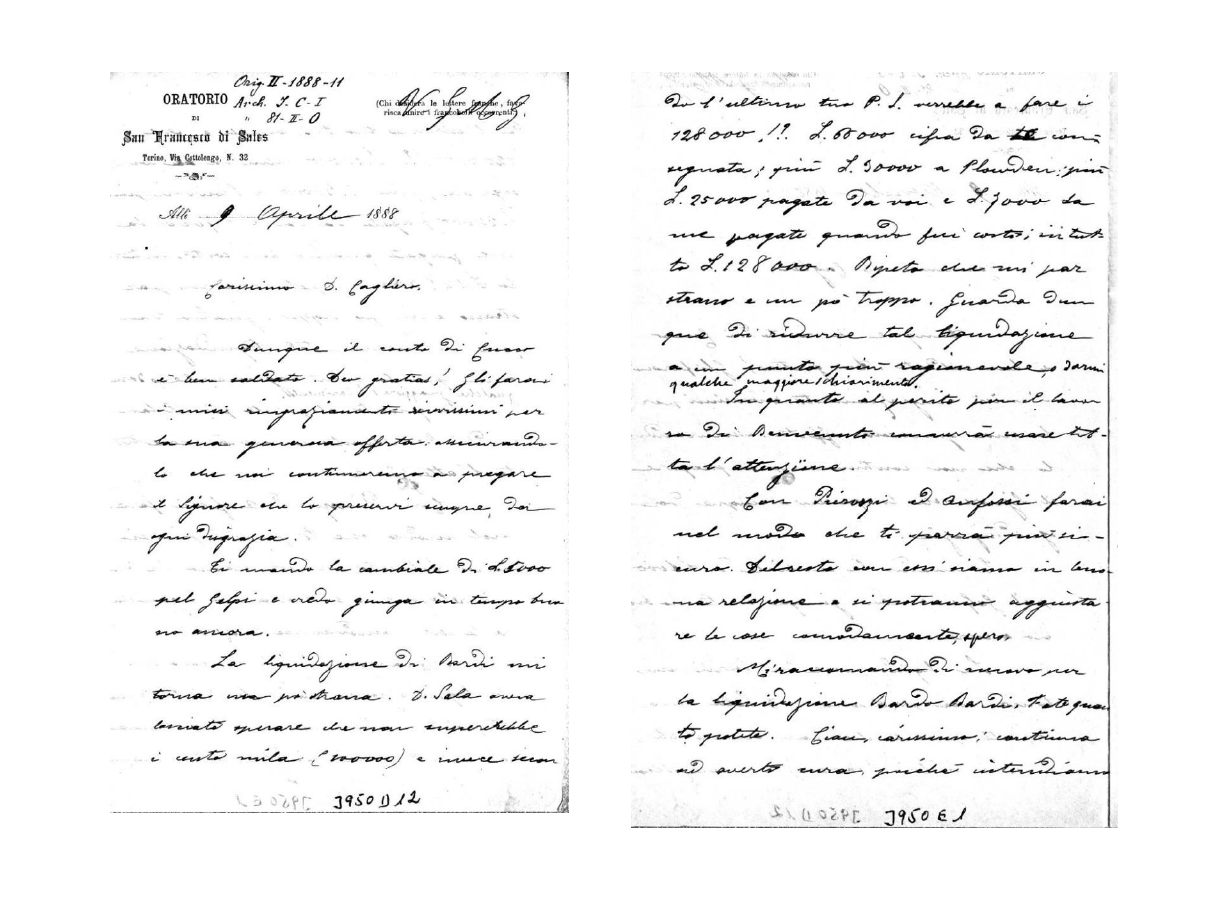 Orig. II-1888-11
ORATORIO Arch. S. C-I
DI " 81-II-0
San Francesco di Sales
Torino, Via Cottolengo, N. 32
(Chi desidera le lettere franche, favo-
risca unire i francobolli occorrenti).
Alli 9 Aprile 1888
Carissimo D. Cagliero.
Dunque il conto di Cuneo
è ben saldato. Deo gratias! Gli farai
i miei ringraziamenti vivissimi per
la sua generosa offerta assicurando-
lo che noi continueremo a pregare
il Signore che lo preservi sempre da
ogni disgrazia.
Ti mando la cambiale di L. 5000
pel Gelpi e credo giunga in tempo buo
no ancora.
La liquidazione di Bardi mi
torna un po' strana. D. Sala aveva
lasciato sperare che non supererebbe
i cento mila (100000) e invece secon
J950 D 12
do l'ultimo tuo P. S. verrebbe a fare i
128000 !!. L. 68000 cifra da te con-
segnata; più L. 30000 a Plowden; più
L. 25000 pagate da voi e L. 7000 da
me pagate quando fui costì; in tut-
to L. 128000. Ripeto che mi par
strano e un po' troppo. Guarda dun
que di ridurre tal liquidazione
a un punto più ragionevole, o darmi
qualche maggiore schiarimento.
In quanto al perito per il lavo
ro di Benvenuto converrà usare tut-
ta l'attenzione.
Con Pierozzi ed Anfossi farai
nel modo che ti parrà più si-
curo. Del resto con essi siamo in buo-
na relazione e si potranno aggiusta-
re le cose comodamente, spero.
Mi raccomando di nuovo per
la liquidazione Bardo Bardi. Fate quan
to potete. Ciao, carissimo; continua
ad averti cura, poiché intendiamo
J950 E 1